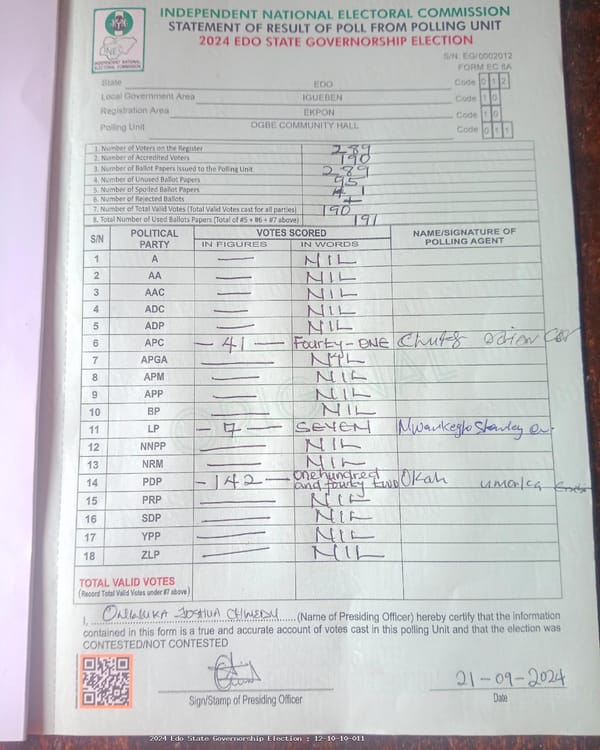 INDEPENDENT NATIONAL ELECTORAL COMMISSION
STATEMENT OF RESULT OF POLL FROM POLLING UNIT
2024 EDO STATE GOVERNORSHIP ELECTION
INEC
INDEPENDENT NATIONAL ELECTORAL COMMISSION
S/N: EG/0002012
FORM EC 8A
State EDO Code 0 1 2
Local Government Area IGUEBEN Code 1 0
Registration Area EKPON Code 1 0
Polling Unit OGBE COMMUNITY HALL Code 0 1 1
1. Number of Voters on the Register 289
2. Number of Accredited Voters 190
3. Number of Ballot Papers Issued to the Polling Unit 289
4. Number of Unused Ballot Papers 95
5. Number of Spoiled Ballot Papers
6. Number of Rejected Ballots
7. Number of Total Valid Votes (Total Valid Votes cast for all parties) 190
8. Total Number of Used Ballots Papers (Total of #5 + #6 + #7 above) 191
S/N POLITICAL PARTY VOTES SCORED NAME/SIGNATURE OF POLLING AGENT
IN FIGURES IN WORDS
1 A — NIL
2 AA — NIL
3 AAC — NIL
4 ADC — NIL
5 ADP — NIL
6 APC - 41 — Fourty-ONE
7 APGA — NIL
8 APM — NIL
9 APP — NIL
10 BP — NIL
11 LP - 7 — SEVEN Stanley
12 NNPP — NIL
13 NRM — NIL
14 PDP - 142 — one hundred and fourty two Okah
15 PRP — NIL
16 SDP — NIL
17 YPP — NIL
18 ZLP — NIL
TOTAL VALID VOTES
(Record Total Valid Votes under #7 above)
I, JOSHUA (Name of Presiding Officer) hereby certify that the information
contained in this form is a true and accurate account of votes cast in this polling Unit and that the election was
CONTESTED/NOT CONTESTED
21-09-2024
Sign/Stamp of Presiding Officer Date
2024 Edo State Governorship Election : 12-10-10-011